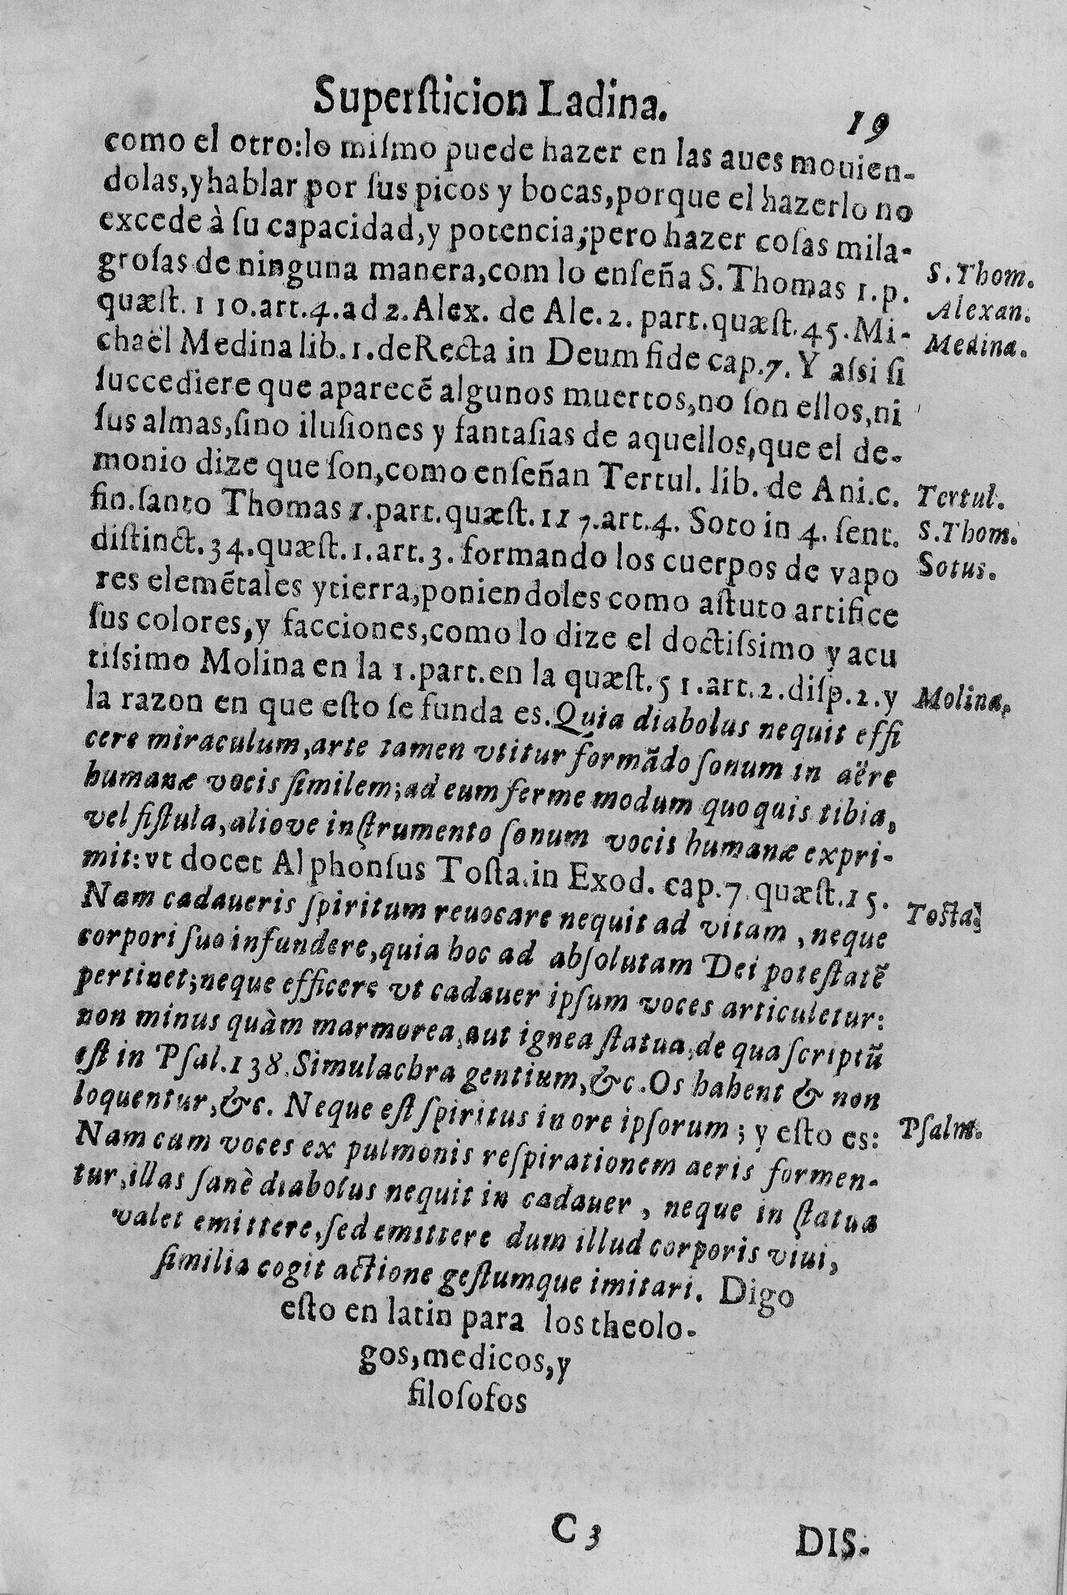 Superſticion Ladina.
19
como el otro:lo miſmo puede hazer en las aues mouien-
dolas,yhablar por ſus picos y bocas,porque el hazerlo no
excede à ſu capacidad,y potencia;pero hazer coſas mila-
groſas de ninguna manera,com lo enſeña S.Thomas 1.p.
quæſt. 110.art.4.ad 2.Alex. de Ale.2. part.quæſt.45.Mi-
chaël Medina lib.1.deRecta in Deum fide cap.7. Y aſsi ſi
ſuccediere que aparecẽ algunos muertos,no ſon ellos,ni
ſus almas,ſino iluſiones y fantaſias de aquellos,que el de-
monio dize que ſon,como enſeñan Tertul. lib. de Ani.c.
fin.ſanto Thomas 1.part.quæſt.117.art.4. Soto in 4. ſent.
diſtinct.34.quæſt.1.art.3. formando los cuerpos de vapo
res elemẽtales ytierra,poniendoles como aſtuto artifice
ſus colores,y facciones,como lo dize el doctiſsimo y acu
tiſsimo Molina en la 1.part.en la quæſt.51.art.2.diſp.2.y
la razon en que eſto ſe funda es.Quia diabolus nequit effi
cere miraculum,arte tamen vtitur formãdo ſonum in aëre
humanæ vocis ſimilem;ad eum ferme modum quo quis tibia,
vel fiſtula,aliove inſtrumento ſonum vocis humanæ expri-
mit:vt docet Alphonſus Toſta.in Exod. cap.7 quæſt.15.
Nam cadaueris ſpiritum reuocare nequit ad vitam , neque
corpori ſuo infundere,quia hoc ad abſolutam Dei poteſtatẽ
pertinet;neque efficere vt cadauer ipſum voces articuletur:
non minus quàm marmorea,aut ignea ſtatua,de qua ſcriptũ
eſt in Pſal.138.Simulachra gentium,&c.Os habent & non
loquentur,&c. Neque eſt ſpiritus in ore ipſorum ; y eſto es:
Nam cum voces ex pulmonis reſpirationem aeris formen-
tur,illas ſanè diabolus nequit in cadauer , neque in ſtatua
valet emittere,ſed emittere dum illud corporis viui,
ſimilia cogit actione geſtumque imitari. Digo
eſto en latin para los theolo-
gos,medicos,y
filoſofos
S.Thom.
Alexan.
Medina.
Tertul.
S.Thom.
Sotus.
Molina,
Toſta.
Pſalm.
C 3
DIS-